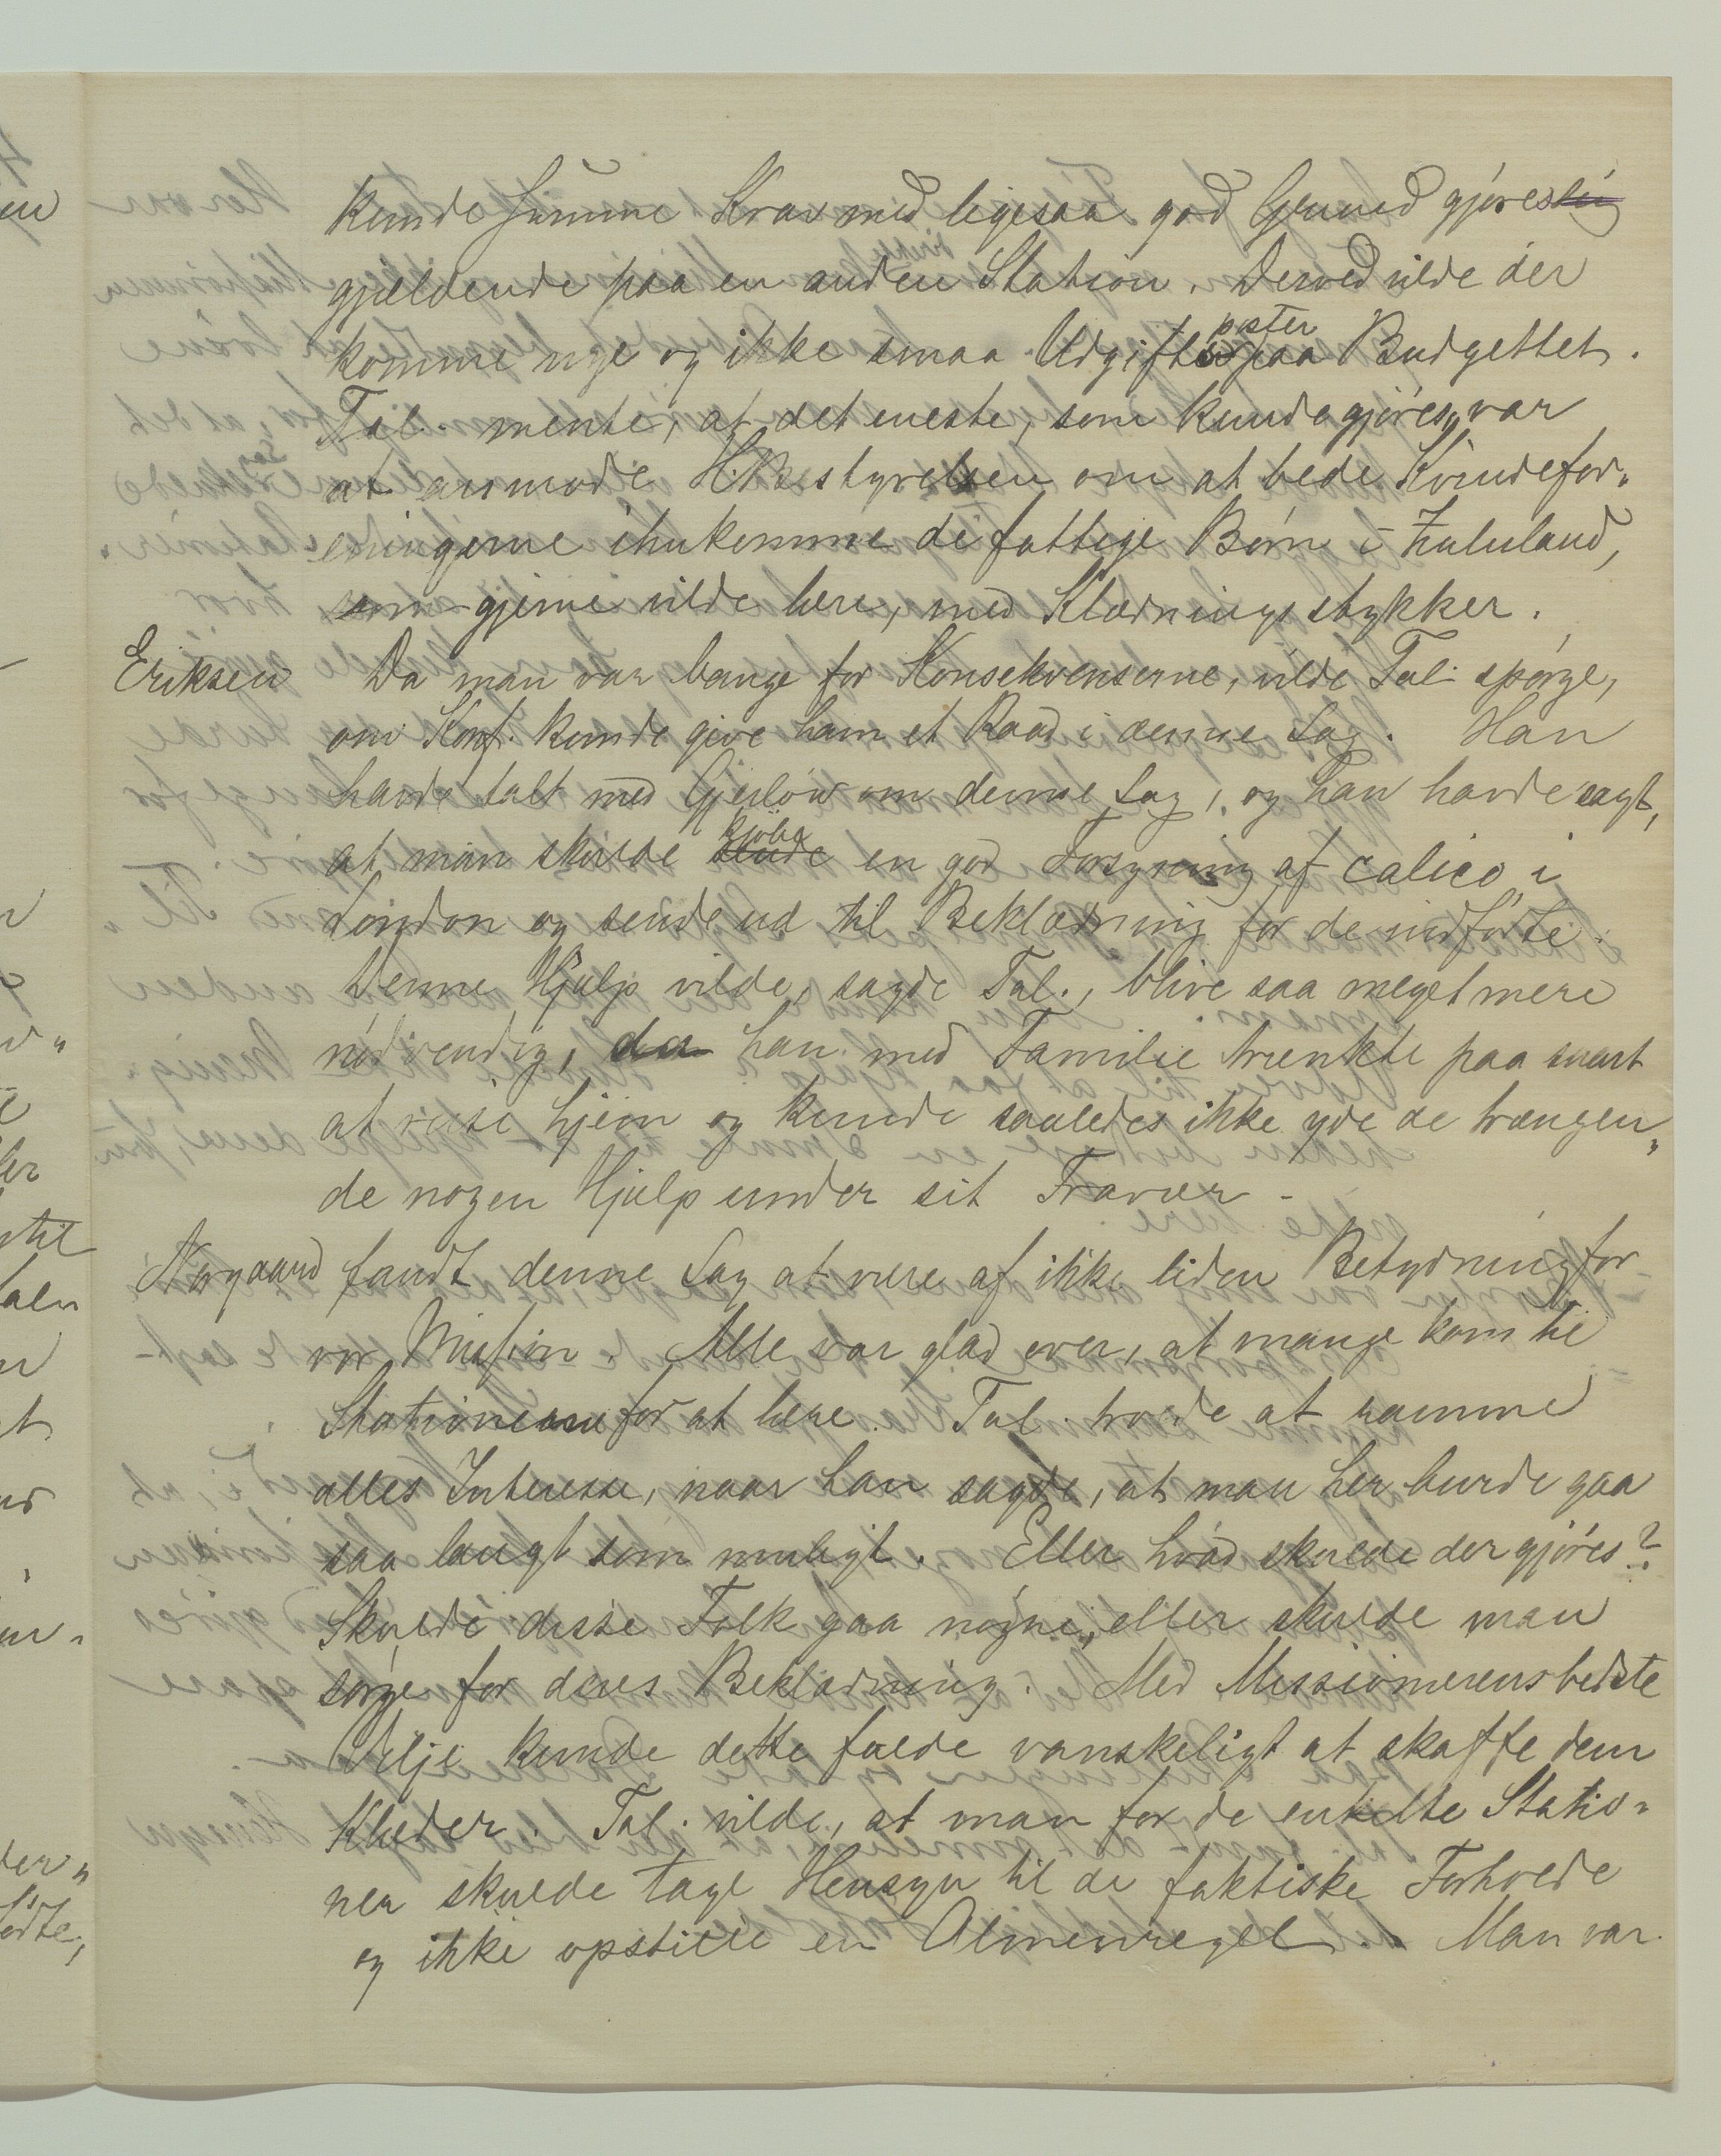 kunde samme Krav med ligesaa god Grund gjøres
gjældende paa en anden Station. Derved vilde der
komme nye og ikke smaa Udgiftsposter paa Budgettet.
Tal. mente, at det eneste, som kunde gjøres, var
at anmode H.Bestyrelsen om at bede Kvindefor„
eningerne ihukomme de fattige Børn i Zululand,
som gjerne vilde lære, med Klædningsstykker.
Eriksen Da man var bange for Konsekvenserne, vilde Tal. spørge,
om Konf. kunde give ham et Raad i denne Sag. Han
havde talt med Gjerløw om denne Sag, og han havde sagt,
at man skulde kjøbe en god Forsyning af calico i
London og sende ud til Beklædning for de indfødte.
Denne Hjælp vilde, sagde Tal., blive saa meget mere
nødvendig, da han med Familie tænkte paa snart
at reise hjem og kunde saaledes ikke yde de trængen„
de nogen Hjælp under sit Fravær.
Norgaard fandt denne Sag at være af ikke liden Betydning for
vor Mission. Alle var glad over, at mange kom til
Stationerne for at lære. Tal. troede at ramme
alles Interesse, naar han sagde, at man her burde gaa
saa langt som muligt. Eller hvad skulde der gjøres?
Skulde disse Folk gaa nøgne, eller skulde man
sørge for deres Beklædning. Med Missionærens bedste
Vilje kunde dette falde vanskeligt at skaffe dem
Klæder. Tal. vilde, at man for de enkelte Statio„
ner skulde tage Hensyn til de faktiske Forholde
og ikke opstille en Almenregel. Man var